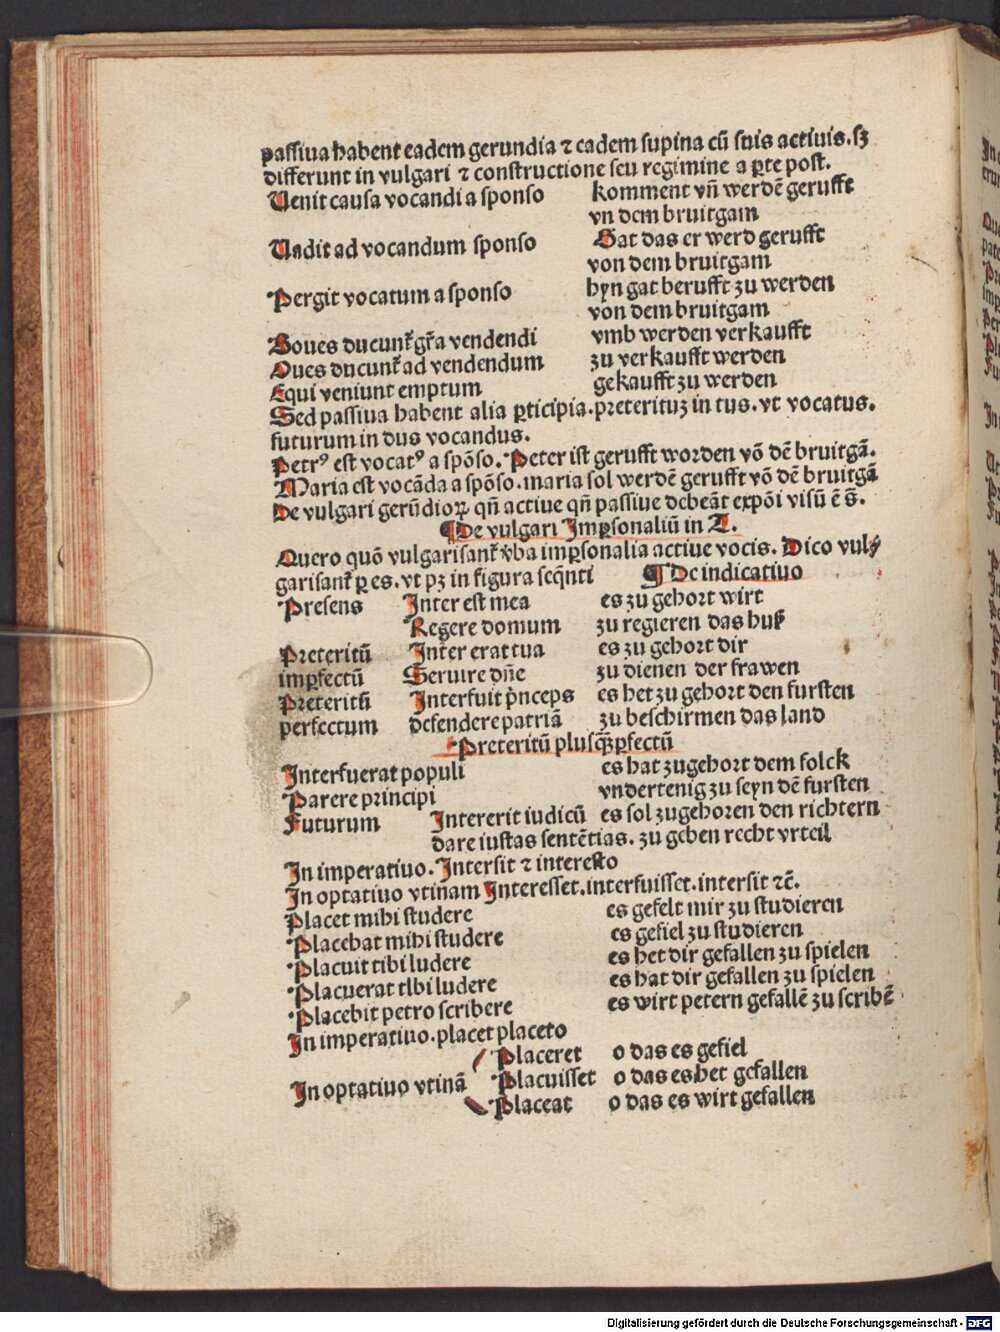 passiua habent eadem gerundia ⁊ eadem supina cū suis actiuis. sꝫ
differunt in vulgari ⁊ constructione seu regimine a ꝑte post.
Uenit causa vocandi a sponso komment vñ werdē gerufft
vn dem bruitgam
Uadit ad vocandum sponso Gat das er werd gerufft
von dem bruitgam
Pergit vocatum a sponso hyn gat berufft zu werden
von dem bruitgam
Boues ducunt̄ gr̄a vendendi vmb werden verkaufft
Oues ducunt̄ ad vendendum zu verkaufft werden
Equi veniunt emptum gekaufft zu werden
Sed passiua habent alia ꝑticipia. preterituꝫ in tus. vt vocatus.
futurum in dus vocandus.
Petrꝰ est vocatꝰ a spōso. Peter ist gerufft worden vō dē bruitgā.
Maria est vocāda a spōso. maria sol werdē gerufft vō dē bruitgā
De vulgari gerūdioꝝ qñ actiue qñ passiue debeāt expōi visū ē s̄.
¶ De vulgari Imꝑsonaliū in T.
Quero quō vulgarisant̄ v̄ba imꝑsonalia actiue vocis. Dico vul⸗
garisant̄ ꝑ es. vt pꝫ in figura seq̄nti ¶ De indicatiuo
Presens Inter est mea es zu gehort wirt
Regere domum zu regieren das huß
Preteritū Inter erat tua es zu gehort dir
imꝑfectū Seruire dn̄e zu dienen der frawen
Preteritū Interfuit p̓nceps es het zu gehort den fursten
perfectum defendere patriā zu beschirmen das land
Preteritū plusq̄ꝑfectū
Interfuerat populi es hat zugehort dem folck
Parere principi vndertenig zu seyn dē fursten
Futurum Intererit iudicū es sol zugehoren den richtern
dare iustas sentētias. zu geben recht vrteil
In imperatiuo. Intersit ⁊ interesto
In optatiuo vtinam Interesset. interfuisset. intersit ⁊c̄.
Placet mihi studere es gefelt mir zu studieren
Placebat mihi studere es gefiel zu studieren
Placuit tibi ludere es het dir gefallen zu spielen
Placuerat tlbi ludere es hat dir gefallen zu spielen
Placebit petro scribere es wirt petern gefallē zu scribē
In imperatiuo. placet placeto
Placeret o das es gefiel
In optatiuo vtinā Placuisset o das es het gefallen
Placeat o das es wirt gefallen
Digitalisierung gefördert durch die Deutsche Forschungsgemeinschaft - DFG